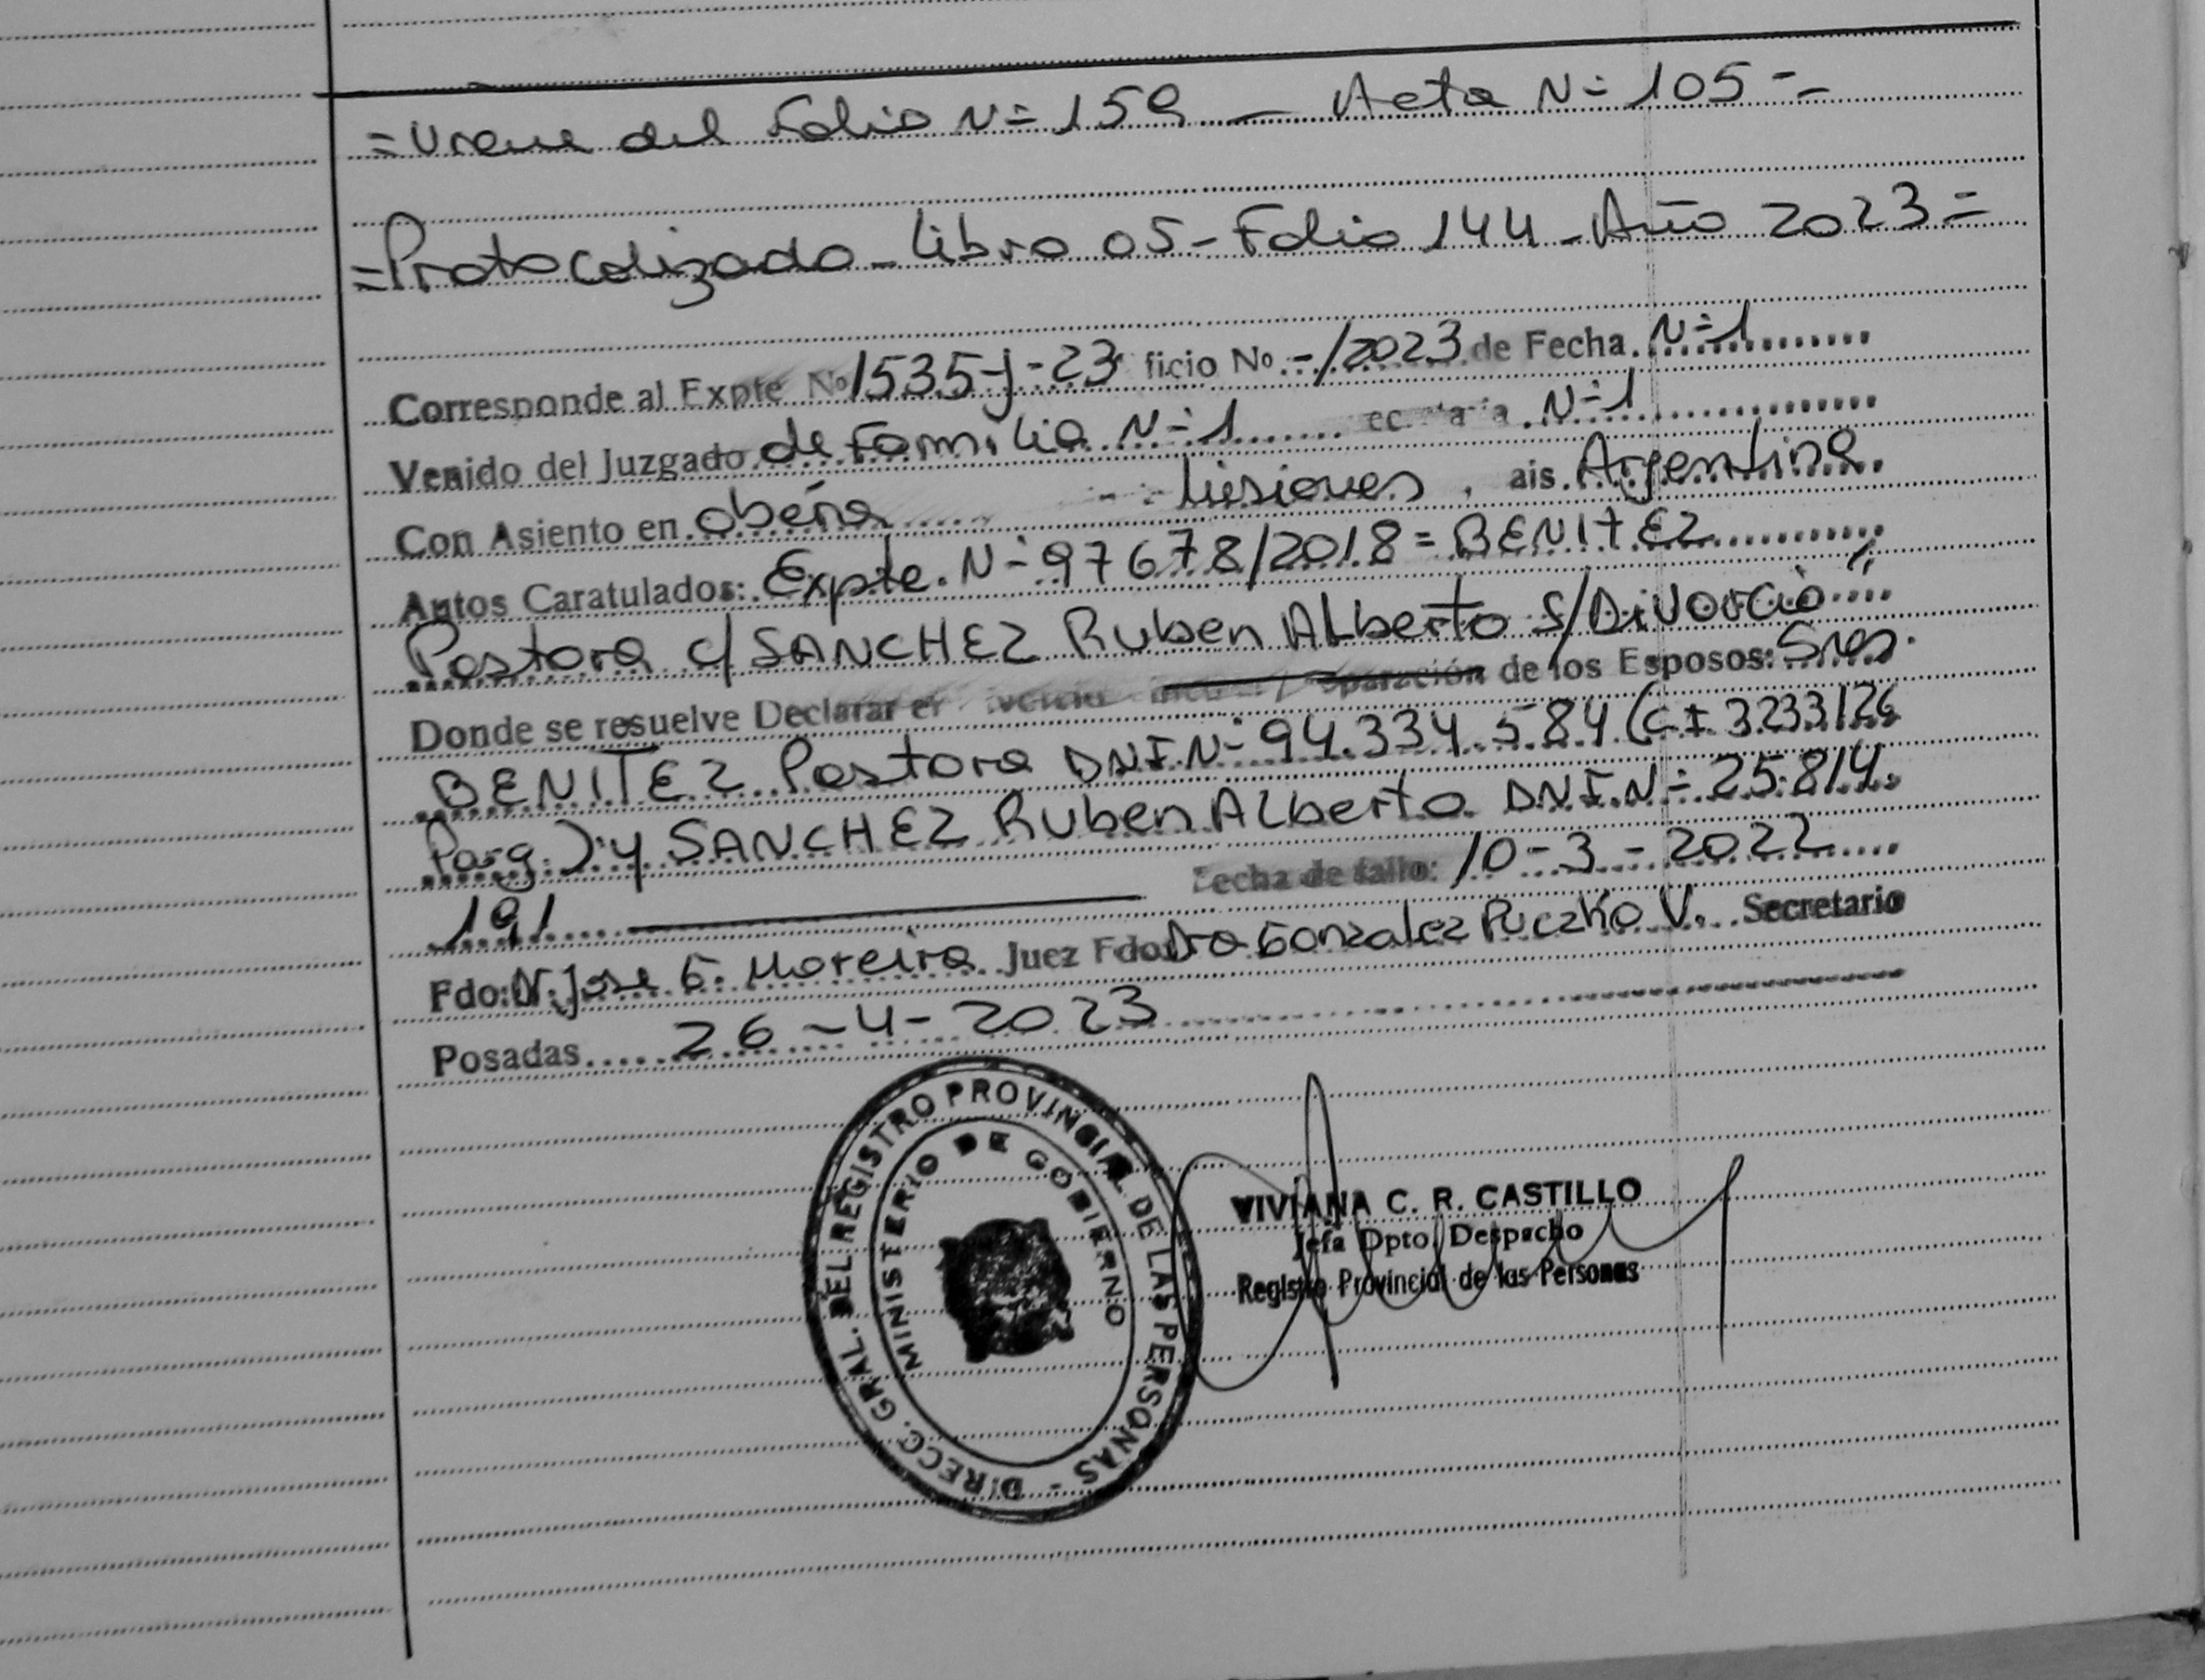 =Viene del Folio N= 159 — Acta N= 105-=
=Protocolizado-Libro 05-Folio 144-Año 2023=
Corresponde al Expte Nº 1535-J-23 ficio Nº -/2023 de Fecha N=1
Venido del Juzgado de Familia N=1 N=1
Con Asiento en Oberá Misiones, ais Argentina
Autos Caratulados: Expte. N=97678/2018= BENITEZ
Pastora c/ SANCHEZ Ruben Alberto S/Divorcio"
Donde se resuelve Declarar el de los Esposos: Sres.
BENITEZ Pastora DNI.N=94.334.584 (CI 3233126
Parg.) y SANCHEZ Ruben Alberto DNI.N=25.814.
191 Fecha de fallo: 10-3-2022
Fdo: Jose G. Moreira Juez Fdo: Dra Gonzalez Puczko V. Secretario
Posadas 26-4-2023
DIRECC. GRAL. DEL REGISTRO PROVINCIAL DE LAS PERSONAS -
MINISTERIO DE GOBIERNO
VIVIANA C. R. CASTILLO
Jefa Dpto. Despacho
Registro Provincial de las Personas